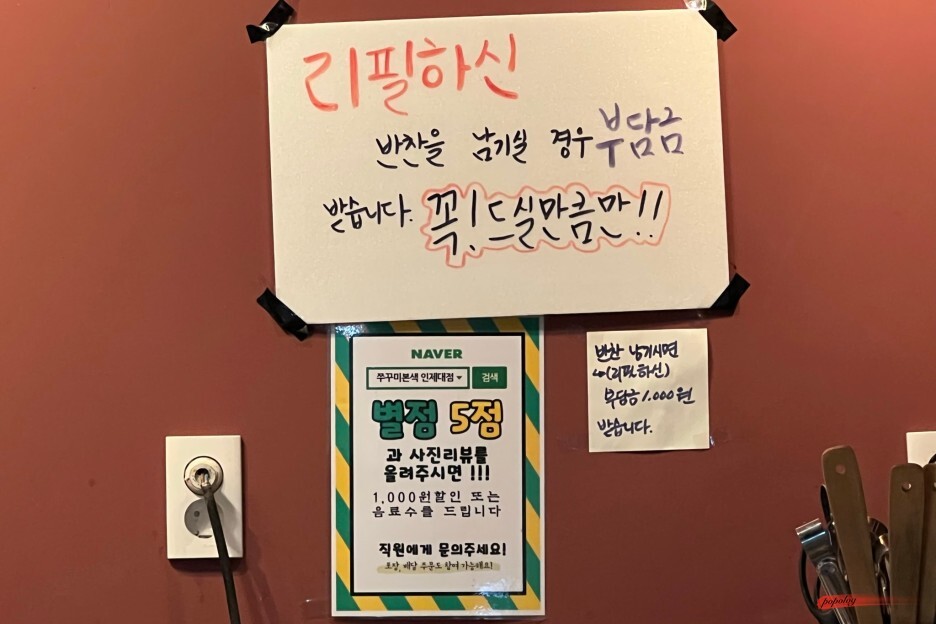 리필하신
반찬을 남기실 경우 부담금
받습니다. 꼭! 드실만큼만!!
NAVER
쭈꾸미본색 인제대점 검색
별점 5점
과 사진리뷰를
올려주시면 !!!
1,000원할인 또는
음료수를 드립니다
직원에게 문의주세요!
포장, 배달 주문도 참여 가능해요!
반찬 남기시면
(리필하신)
부담금 1.000원
받습니다.
popolog